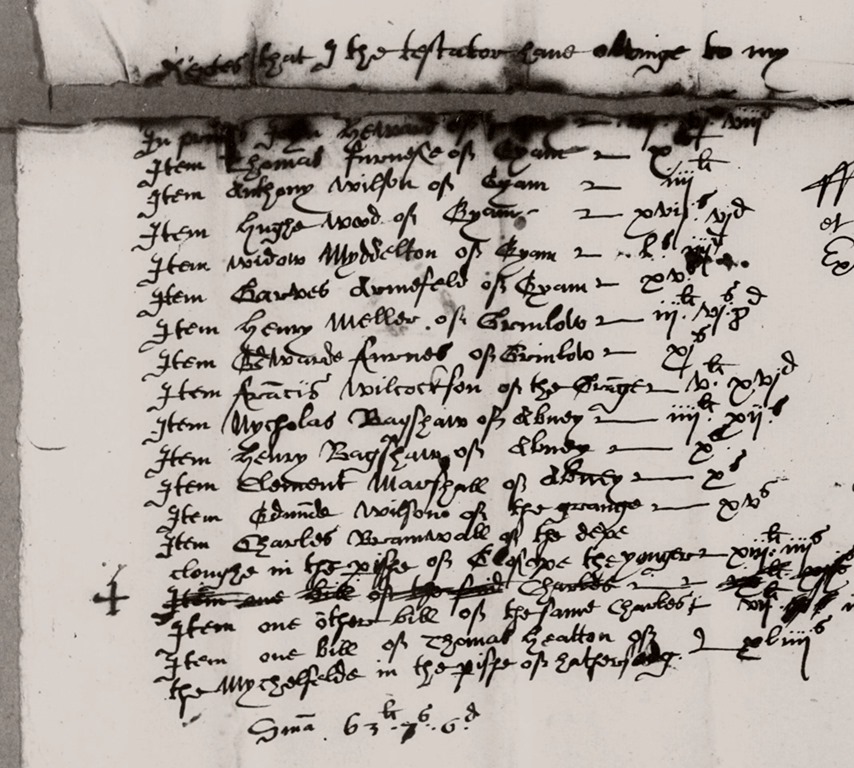 Dettes that I the testator have owinge to my
In prims Heward of viij
Item Thomas Furnese of Eyam x li
Item Anthony Wilson of Eyam iiij li
Item Hughe Wood of Eyam xvij s vj d
Item widow Myddelton of Eyam l s
Item Garves Armefeld of Eyam xv s
Item Henry Meller of Grinlow iij li vj s 8 d
Item Edwarde Furnes of Grinlow xj s
Item Francis Wilcockson of the Grange v li xvj d
Item Nycholas Bagshaw of Abney iiij li xij s
Item Henry Bagshaw of Abney x s
Item Clement Marshall of Abney x s
Item Edmude Wilson of the grange xv s
Item Charles Bramwall of the depe
cloughe in the pishe of the yonger xiij li iiij s
Item one bill of the said Charles
Item one other bill of the same Charles vij li
Item one bill of Thomas Heatton of xliiij s
the Mychelfelde in the pishe of hathersedg
Sma 63 li 7 s 6 d
et